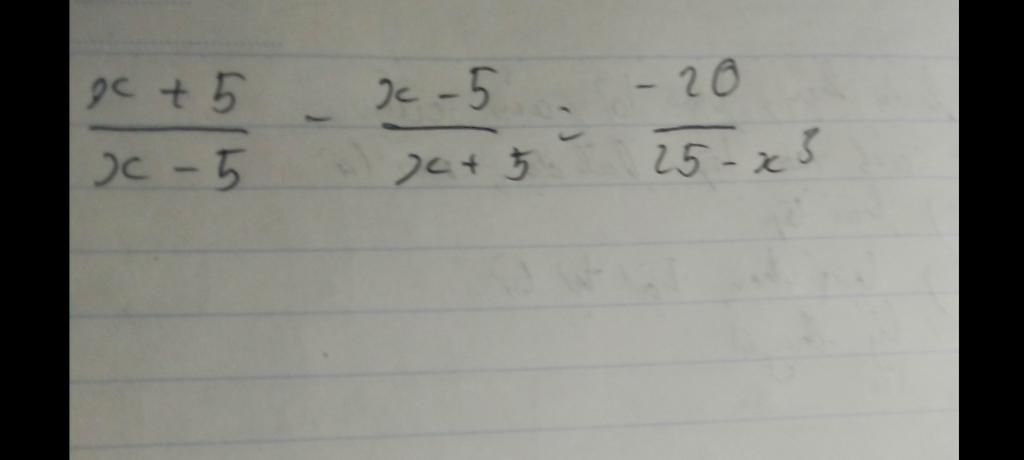 x + 5 / x - 5 - x - 5 / x + 5 = -20 / 25 - x³